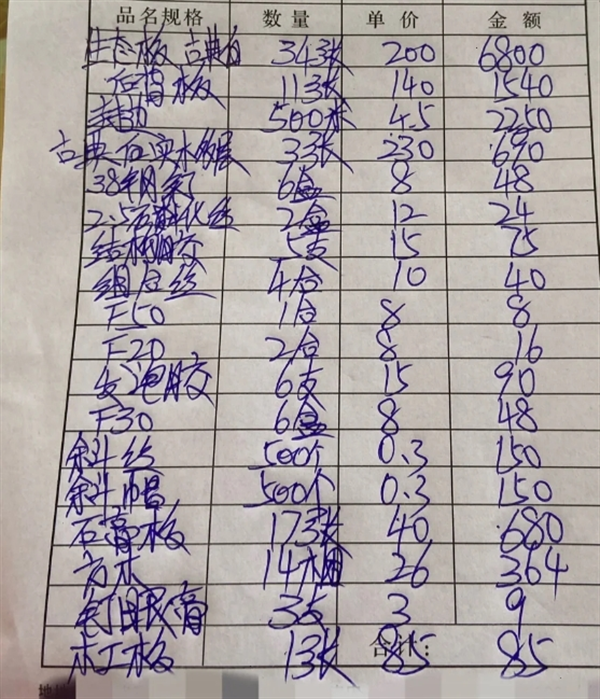 品名规格 数量 单价 金额
生态板 古典白 34张 200 6800
石膏板 11张 140 1540
封边 500米 4.5 2250
古典石实木多层 3张 230 690
38钢钉 6盒 8 48
2.5石膏化丝 2盒 12 24
结构胶 5支 15 75
组合丝 4合 10 40
F50 1合 8 8
F20 2合 8 16
发泡胶 6支 15 90
F30 6盒 8 48
斜斗丝 500个 0.3 150
斜斗帽 500个 0.3 150
石膏板 17张 40 680
方木 14根 26 364
钉眼膏 3支 3 9
木工板 1张 合计: 85 85